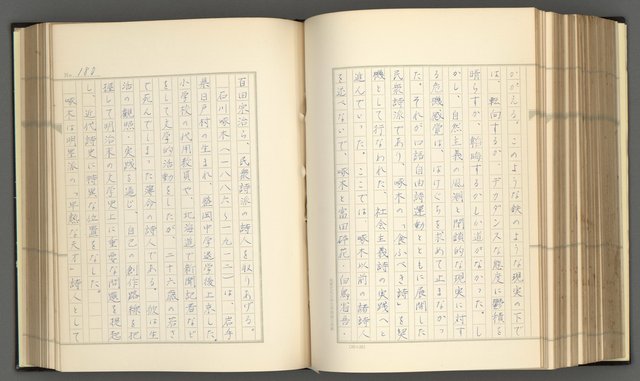 かがえる。このような鉄のような現実の下で
は、転向するか、デカダンスな態度に鬱積を
晴らすか、韜晦するかしか道がなかった。し
かし、自然主義の風潮と閉鎖的な現実に対す
る危機感覚は、はけぐちを求めて止まなかっ
た。それが口語自由詩運動とともに展開した
民衆詩派であり、啄木の「食ふべき詩」を契
機として行なわれた、社会主義詩の実践へと
進んでいった。ここでは、啄木以前の諸詩人
を述べないで、啄木と富田砕花・白鳥省吾・
No. 180
百田宗治ら、民衆詩派の詩人を取りあげる。
石川啄木（一八八六〜一九一二）は、岩手
県日戸村の生まれ、盛岡中学退学後上京した。
小学校の代用教員や、北海道で新聞記者など
をして文学的活動をしたが、二十六歳の若さ
で死んでしまった薄命の詩人である。彼は生
活の観照・実践を通じ、自己の創作路線を把
握して明治末の文学史上に重要な問題を提起
し、近代詩史に特異な位置をなした。
啄木は明星派の「早熟な天才」詩人として